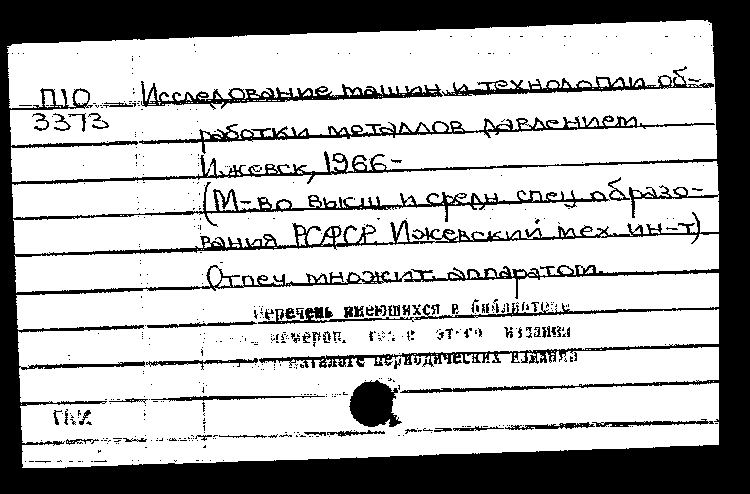 П10 Исследование машин и технологии об-
3373
работки металлов давлением.
Ижевск, 1966-
(М-во высш и средн спец образо-
вания РСФСР. Ижевский мех. ин-т)
Отпеч. множит. аппаратом.
Перечень имеющихся в библиотеке
номеров, этого издания
каталоге периодических изданий